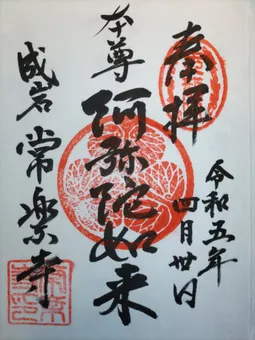 奉拝
令和五年
四月廿日
本尊
阿弥陀如来
成岩
常楽寺